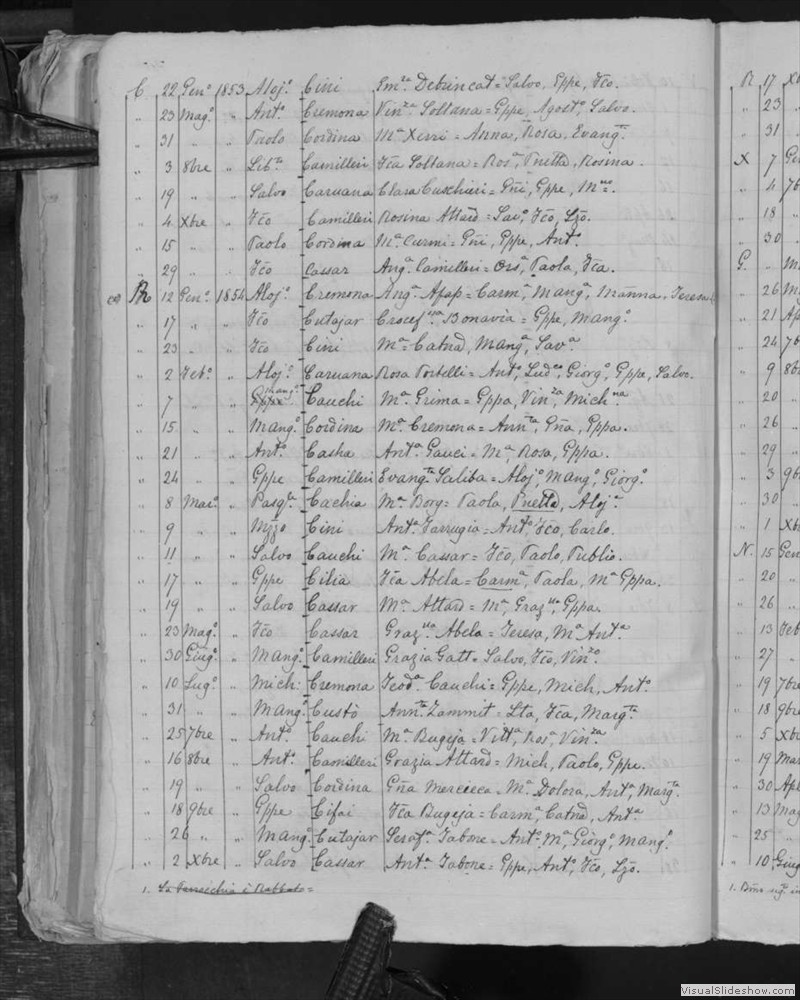 C 22 Gen.º 1853 Aloj.º Cini Em.za Debrincat = Salvo, Gppe, Fco.
" 23 Mag.º " Ant.º Cremona Vin.za Soltana = Gppe, Agost.º, Salvo.
" 31 " " Paolo Cordina M.a Xerri = Anna, Rosa, Evang.ta
" 3 8bre " Lib.to Camilleri Fca Soltana = Ros.a, Pnetta, Rosina
" 19 " " Salvo Caruana Clara Cuschieri = Gñi, Gppe,
" 4 Xbre " Fco Camilleri Rosina Attard = Sav.º, Fco, Lzo.
" 15 " " Paolo Cordina M.a Curmi = Gñi, Gppe, Ant.º
" 29 " " Fco Cassar Ang.a Camilleri = Ors.a, Paola, Fca.
12 Gen.º 1854 Aloj.º Cremona Ang.a Apap = Carm.a, Mang.a, Mãnna, Teresa
" 17 " " Fco Cutajar Crocef.na Bonavia = Gppe, Mang.º
" 23 " " Fco Cini M.a = Catnd, Mang.a, Sav.a
" 2 Feb.º " Aloj.º Caruana Rosa Portelli = Ant.º, Lud.co, Giorg.º, Gppe, Salvo.
" 7 " Mang.º Cauchi M.a Grima = Gppa, Vin.za, Mich.na
" 15 " " Mang.º Cordina M.a Cremona = Ann.ta, Gña, Gppa.
" 21 " " Ant.º Casha Ant.a Gauci = M.a Rosa, Gppa.
" 24 " " Gppe Camilleri Evang.ta Saliba = Aloj.º, Mang.º, Giorg.º
" 8 Mar.º " Pasq.le Cachia M.a Borg = Paola, Pnetta, Aloj.a
" 9 " " Cini Ant.a Farrugia = Ant.º, Fco, Carlo.
" 11 " " Salvo Cauchi M.a Cassar = Fco, Paolo, Publio.
" 17 " " Gppe Cilia Fca Abela = Carm.a, Paola, M.a Gppa.
" 19 " " Salvo Cassar M.a Attard = M.a, Graz.lla, Gppa.
" 23 Mag.º " Fco Cassar Graz.lla Abela = Teresa, M.a Ant.a
" 30 Giug.º " Mang.º Camilleri Grazia Gatt = Salvo, Fco, Vin.zo
" 10 Lug.º " Mich: Cremona Teod.a Cauchi = Gppe, Mich, Ant.º
" 31 " " Mang.º Custò Ann.ta Zammit = Lta, Fca, Marg.ta
" 25 7bre " Ant.º Cauchi M.a Bugeja = Vitt.a, Ros.a, Vin.za
" 16 8bre " Ant.º Camilleri Grazia Attard = Mich, Paolo, Gppe.
" 19 " " Salvo Cordina Gña Mercieca = M.a Dolora, Ant.a, Marg.ta
" 18 9bre " Gppe Cifai Fca Bugeja = Carm.a, Catnd, Ant.a
" 26 " " Mang.º Cutajar Seraf.a Tabone = Ant.º, M.a, Giorg.º, Mang.º
" 2 Xbre " Salvo Cassar Ant.a Tabone = Gppe, Ant.º, Fco, Lzo.
1.
R 17 Xb
" 23
" 31
X 7 Ge
" 4 7b
" 18
" 30
G. " M
" 26 M
" 21 Ap
" 24 7b
" 9 8b
" 20
" 26
" 29
" 3 9b
" 30
" 1 Xb
N. 15 Gen
" 20
" 26
" 13 Feb
" 27
" 19 7bre
" 18 9bre
" 5 Xbr
" 19 Mar
" 30 Apl
" 13 Mag
" 25 "
" 10 Giug
1.
VisualSlideshow.com